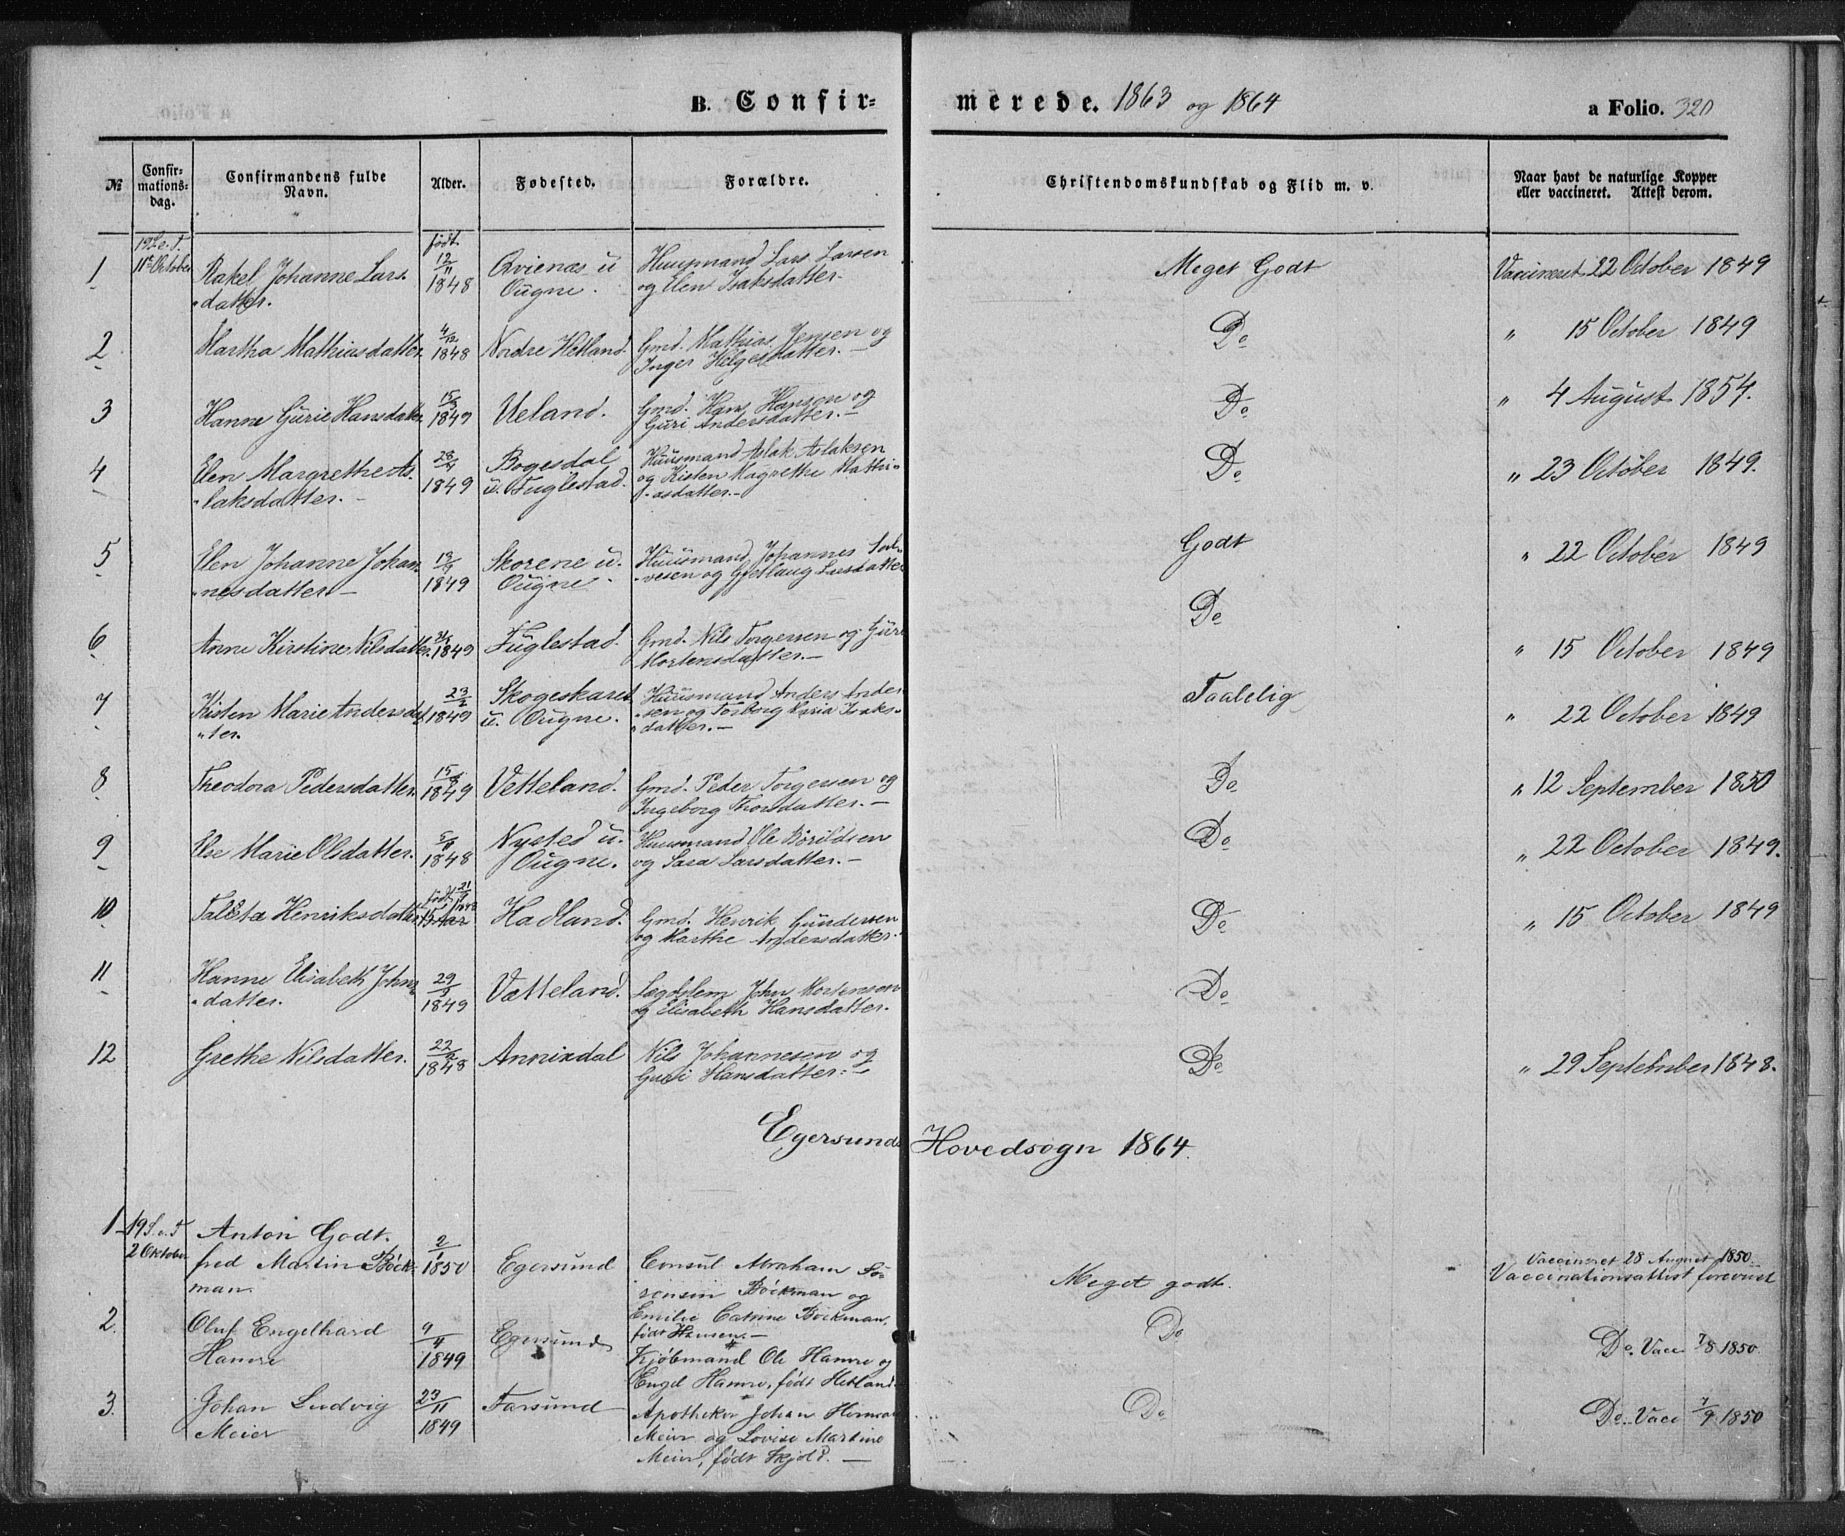 B. Confir-
merede. 1863 og 1864
a Folio. 320
№
Confir-
mations-
dag.
Confirmandens fulde
Navn.
Alder.
Fødested.
Forældre.
Christendomskundskab og Flid m. v.
Naar havt de naturlige Kopper
eller vaccineret. Attest derom.
1
19 S. e. T.
11te October
Rakel Johanne Lars-
datter.
født
12/11
1848
Qvienæs u
Ougne.
Huusmand Lars Larsen
og Elen Isaksdatter
Meget Godt
Vaccineret 22 October 1849
2
Martha Mathiasdatter
4/12
1848
Nordre Hetland.
Gmd. Mathias Jensen og
Inger Helgesdatter. –
Do
" 15 October 1849
3
Hanne Gurie Hansdatter
1849
Ueland.
Gmd. Hans Hansen og
Guri Andersdatter. –
Do
" 4 August 1854.
4
Elen Margrethe As-
laksdatter. –
1849
Bogesdal
u. Fuglestad.
Huusmand Aslak Aslaksen
og Kisten Magrethe Mathi-
asdatter. –
Do
" 23 October 1849.
5
Elen Johanne Johan-
nesdatter –
1849
Skorene u.
Ougne.
Huusmand Johannes
og Gjetlaug Larsdatter
Godt
" 22 October 1849
6
Anne Kirstine Nilsdatter.
1849
Fuglestad.
Gmd. Nils Torgersen og Guri
Mortensdatter. –
Do
" 15 October 1849
7
Kisten Marie Andersdat-
ter.
23/2
1849
Skogeskaret
u. Ougne.
Huusmand Anders Ander-
sen og Torborg Maria Isaks-
datter. –
Taalelig
" 22 October 1849
8
Theodora Pedersdatter.
1849
Vetteland.
Gmd. Peder Torgersen og
Ingeborg Thorsdatter. –
Do
" 12 September 1850
9
Else Marie Olsdatter.
1848
Nysted u.
Ougne.
Huusmand Ole
og Sara Larsdatter. –
Do
" 22 October 1849.
10
Henriksdatter
født
15 Aar
Hadland.
Gmd. Henrik Gundersen
og Marthe Andersdatter.
Do
" 15 October 1849
11
Hanne Elisabeth Johns-
datter.
1849
Vatteland.
Lægdslem John Mortensen
og Elisabeth Hansdatter.
Do
12
Grethe Nilsdatter.
1848
Annixdal
Nils Johannesen og
Guri Hansdatter. –
Do
" 29 September 1848.
Egersunds Hovedsogn 1864.
1
19 S. e. T
2 Oktober
Anton Godt-
fred Martin Böck-
man.
2/1
1850
Egersund
Consul Abraham Sö-
rensen Böckman og
Emilie Catrine Böckman,
født Hansen. –
Meget godt.
Vaccineret 28 August 1850.
Vaccinationsattest foreviist
2.
Oluf Engelhard
Hamre
1849
Egersund
Kjöbmand Ole Hamre og
Engel Hamre, født Hetland
Do
Do. Vacc 7/8 1850.
3.
Johan Ludvig
Meier
23/11
1849
Farsund
Apotheker Johan
Meier og Lovise Martine
Meier, født Skjold. –
Do
Do. Vacc 7/9 1850